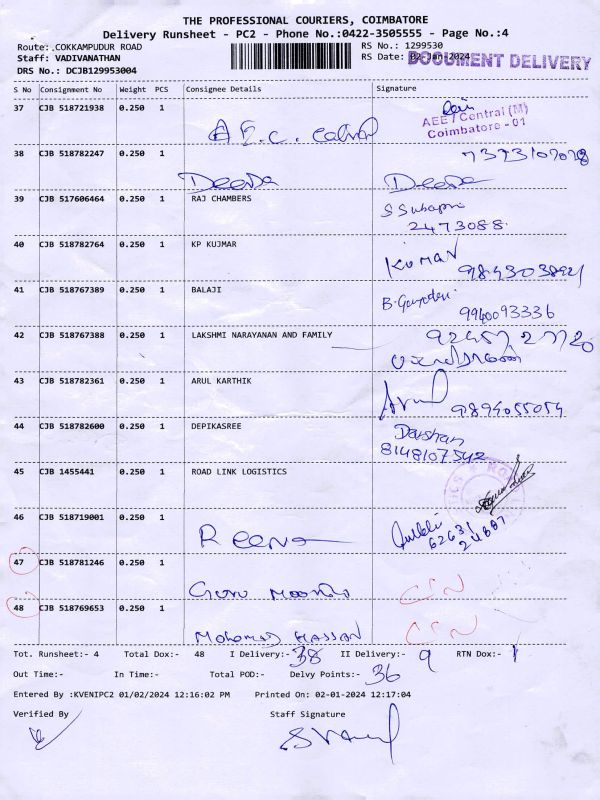 THE PROFESSIONAL COURIERS, COIMBATORE
Delivery Runsheet - PC2 - Phone No.:0422-3505555 - Page No.:4
Route: COKKAMPUDUR ROAD RS No.: 1299530
Staff: VADIVANATHAN RS Date: 02-Jan-2024 DOCUMENT DELIVERY
DRS No.: DCJB129953004
S No Consignment No Weight PCS Consignee Details Signature
37 CJB 518721938 0.250 1
AEE / Central (M)
Coimbatore - 01
38 CJB 518782247 0.250 1
Deepa Deepa
39 CJB 517606464 0.250 1 RAJ CHAMBERS
2473088
40 CJB 518782764 0.250 1 KP KUJMAR
KUMAN
41 CJB 518767389 0.250 1 BALAJI
9940093336
42 CJB 518767388 0.250 1 LAKSHMI NARAYANAN AND FAMILY
43 CJB 518782361 0.250 1 ARUL KARTHIK
Arul 9894055054
44 CJB 518782600 0.250 1 DEPIKASREE
Darshan
8148107542
45 CJB 1455441 0.250 1 ROAD LINK LOGISTICS
46 CJB 518719001 0.250 1
Reena
47 CJB 518781246 0.250 1
Guru
48 CJB 518769653 0.250 1
Mohomad Hassan
Tot. Runsheet:- 4 Total Dox:- 48 I Delivery:- 38 II Delivery:- 9 RTN Dox:- 1
Out Time:- In Time:- Total POD:- Delvy Points:- 36
Entered By :KVENIPC2 01/02/2024 12:16:02 PM Printed On: 02-01-2024 12:17:04
Verified By Staff Signature